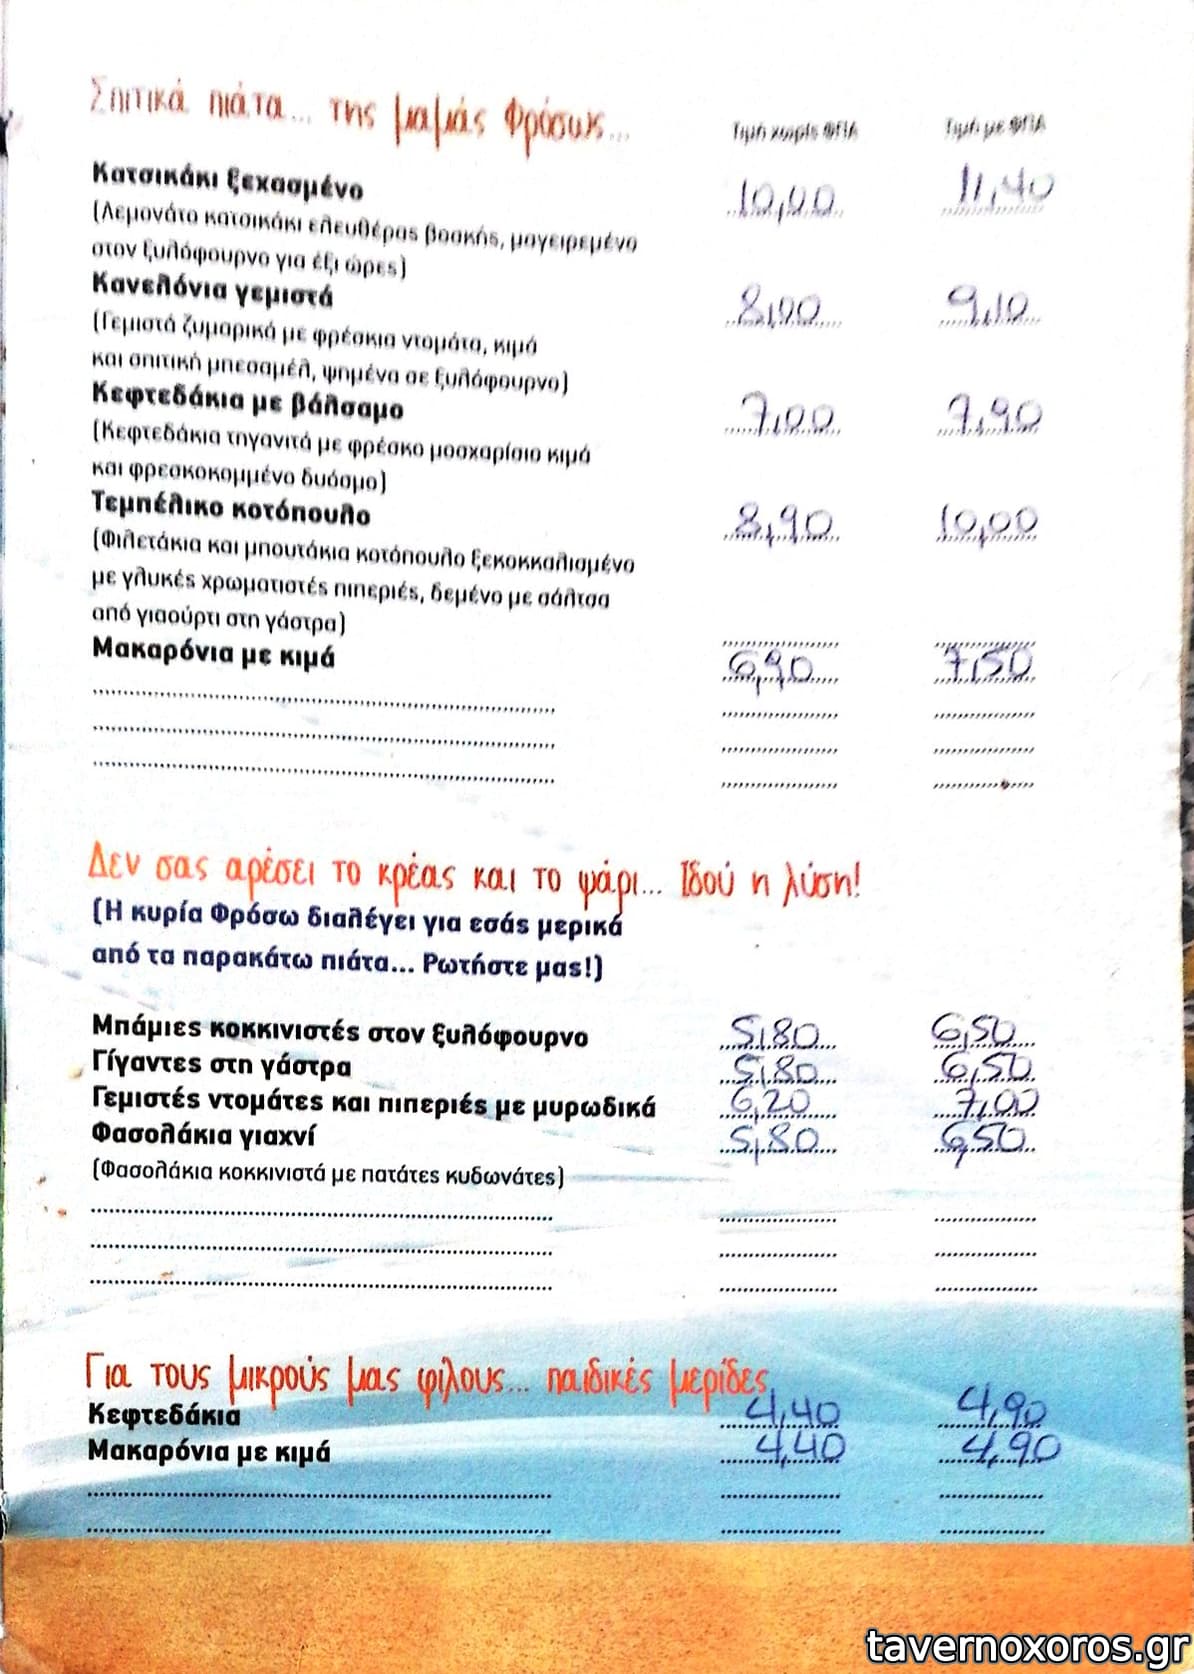 Σπιτικά πιάτα... της μαμάς Φρόσως...
Τιμή χωρίς ΦΠΑ Τιμή με ΦΠΑ
Κατσικάκι ξεχασμένο 10,00 11,40
(Λεμονάτο κατσικάκι ελευθέρας βοσκής, μαγειρεμένο
στον ξυλόφουρνο για έξι ώρες)
Κανελόνια γεμιστά 8,00 9,10
(Γεμιστά ζυμαρικά με φρέσκια ντομάτα, κιμά
και σπιτική μπεσαμέλ, ψημένα σε ξυλόφουρνο)
Κεφτεδάκια με βάλσαμο 7,00 7,90
(Κεφτεδάκια τηγανιτά με φρέσκο μοσχαρίσιο κιμά
και φρεσκοκομμένο δυόσμο)
Τεμπέλικο κοτόπουλο 8,90 10,00
(Φιλετάκια και μπουτάκια κοτόπουλο ξεκοκκαλισμένο
με γλυκές χρωματιστές πιπεριές, δεμένο με σάλτσα
από γιαούρτι στη γάστρα)
Μακαρόνια με κιμά 6,90 7,50
Δεν σας αρέσει το κρέας και το ψάρι... Ιδού η λύση!
(Η κυρία Φρόσω διαλέγει για εσάς μερικά
από τα παρακάτω πιάτα... Ρωτήστε μας!)
Μπάμιες κοκκινιστές στον ξυλόφουρνο 5,80 6,50
Γίγαντες στη γάστρα 5,80 6,50
Γεμιστές ντομάτες και πιπεριές με μυρωδικά 6,20 7,00
Φασολάκια γιαχνί 5,80 6,50
(Φασολάκια κοκκινιστά με πατάτες κυδωνάτες)
Για τους μικρούς μας φίλους... παιδικές μερίδες
Κεφτεδάκια 4,40 4,90
Μακαρόνια με κιμά 4,40 4,90
tavernoxoros.gr